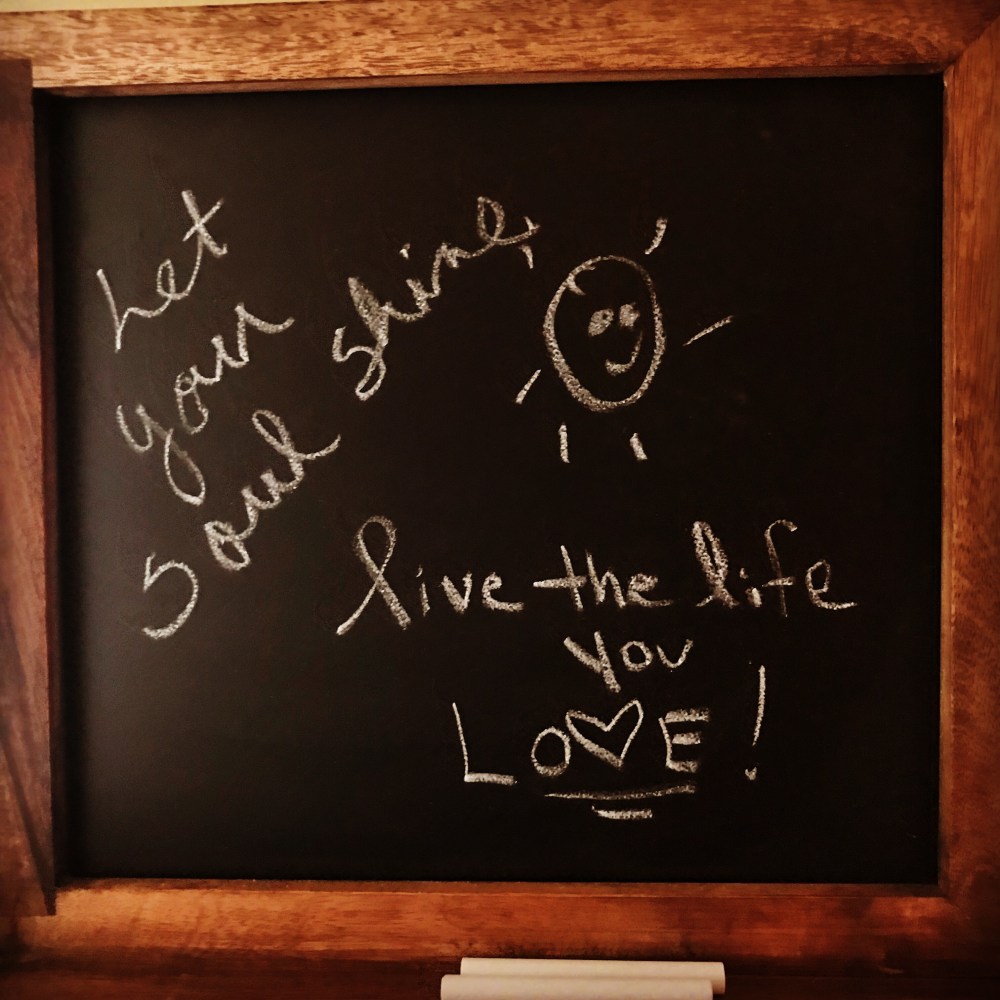 Let
your
soul shine,
live the life
you
LO♡E!